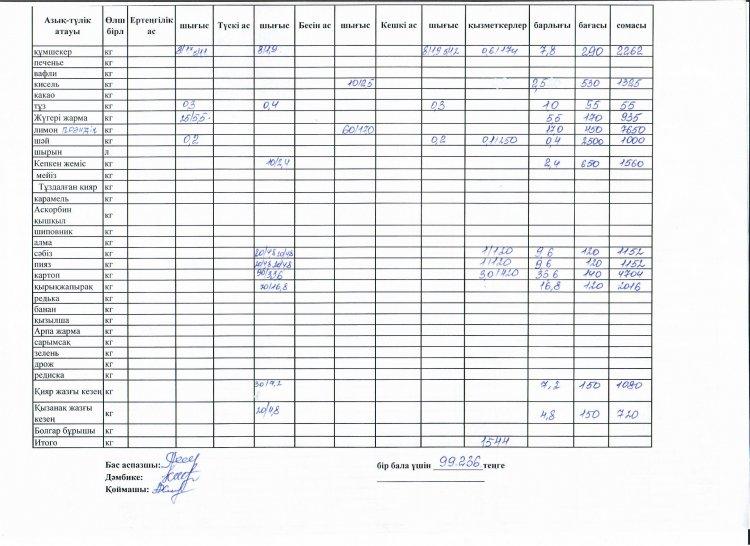 Азық-түлік атауы Өлш бірл Ертеңгілік ас шығыс Түскі ас шығыс Бесін ас шығыс Кешкі ас шығыс қызметкерлер барлығы бағасы сомасы
құмшекер кг 7,8 290 2262
печенье кг
вафли кг
кисель кг 10/25 2,5 530 1325
какао кг
тұз кг 0,3 0,4 0,3 1,0 55 55
Жүгері жарма кг 25/5,5 5,5 170 935
лимон кг 60/170 170 450 7650
шәй кг 0,2 0,2 0,4 2500 1000
шырын л
Кепкен жеміс кг 10/2,4 2,4 650 1560
мейіз кг
Тұздалған қияр кг
карамель кг
Аскорбин қышқыл кг
шиповник кг
алма кг
сәбіз кг 20/4,8 20/4,8 1/120 9,6 120 1152
пияз кг 20/4,8 20/4,8 1/120 9,6 120 1152
картоп кг 33,6 140 4704
қырықжапырақ кг 70/16,8 16,8 120 2016
редька кг
банан кг
қызылша кг
Арпа жарма кг
сарымсақ кг
зелень кг
дрож кг
редиска кг
Қияр жазғы кезең кг 30/7,2 7,2 150 1080
Қызанак жазғы кезең кг 20/4,8 4,8 150 720
Болгар бұрышы кг
Итого кг 1544
Бас аспазшы:
бір бала үшін 99.236 теңге
Дәмбике:
Қоймашы: